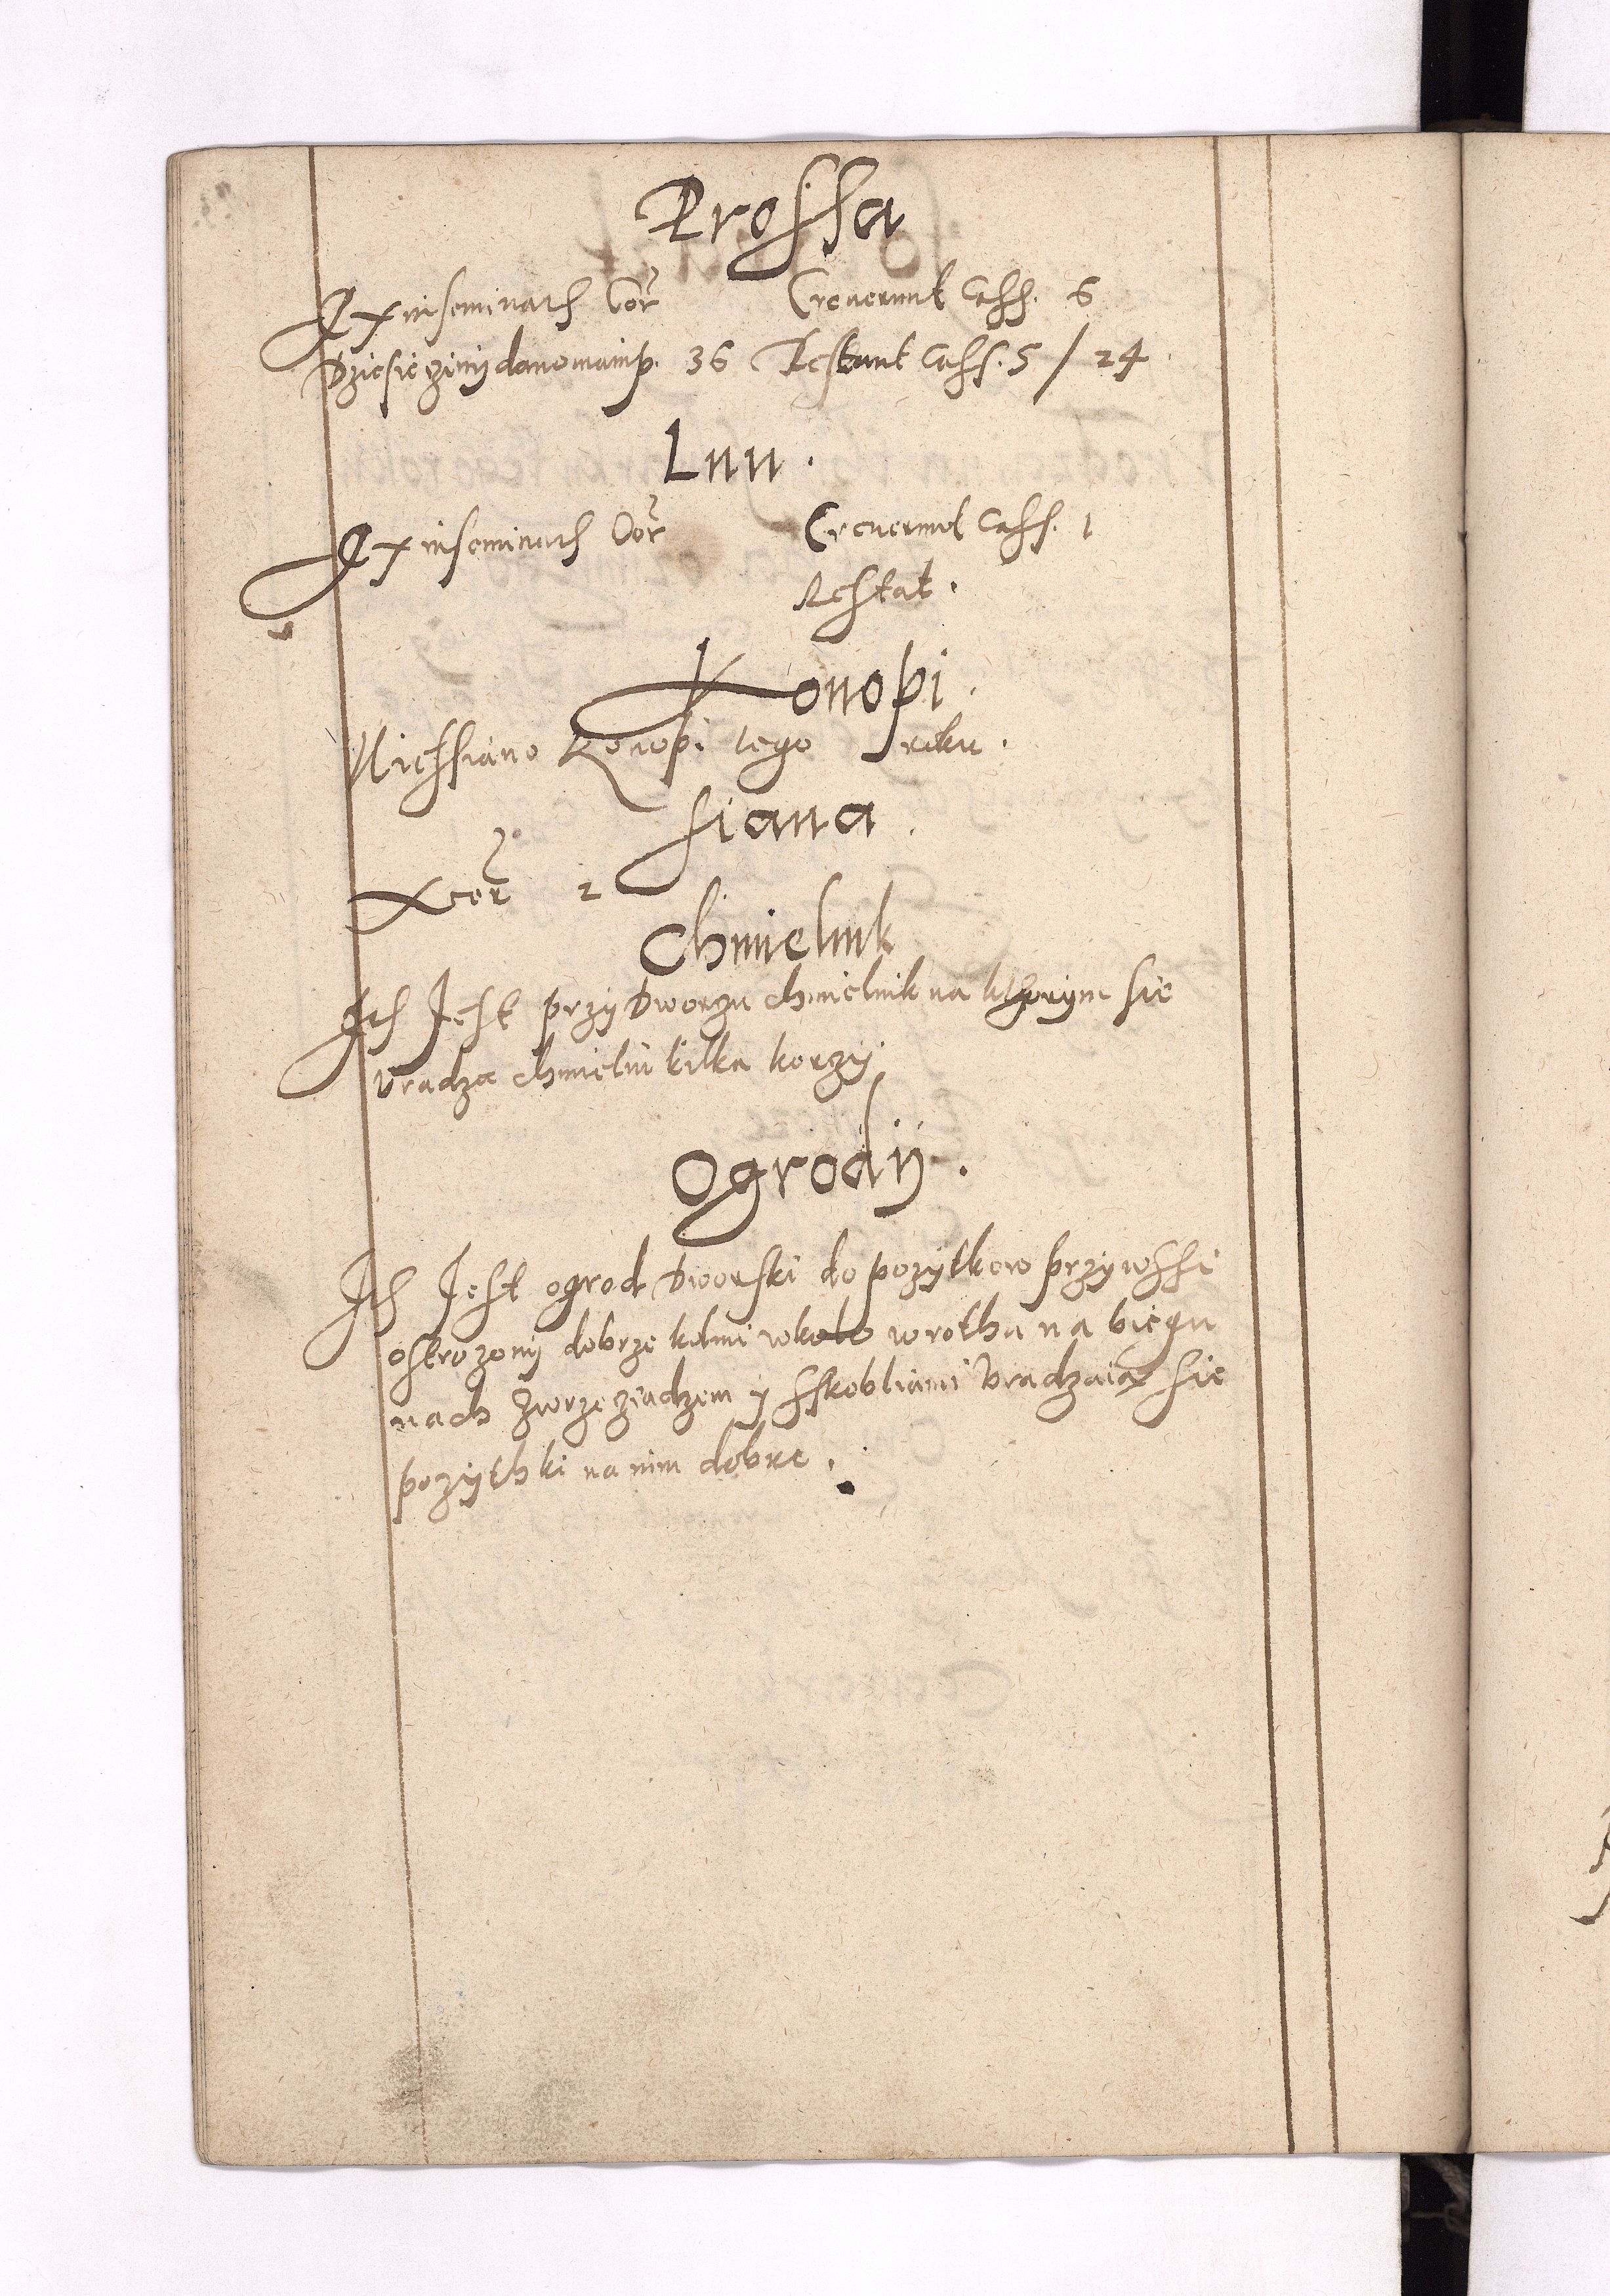 Prossa
Ex inseminatis Cor Creuerunt Cass. 6
Dziesięziny dano manip. 36 Restant Cass. 5 / 24
Lnu.
Ex inseminatis Cor Creuerunt Cass. 1
Restat.
Konopi.
Niessiano Konopi tego roku.
siana.
2
Chmielnik
Jest przy Dworzu chmielnik na kthorym sie
Vradza chmieliu kilka korzy
Ogrody.
Jest ogrod Dworski do pozytkow przy wssi
ostrozony dobrze kolmi wkolo wrotha na biegu
nach z wrzeziadzem y sskobliami Vradzaią sie
pozythki na nim dobre.